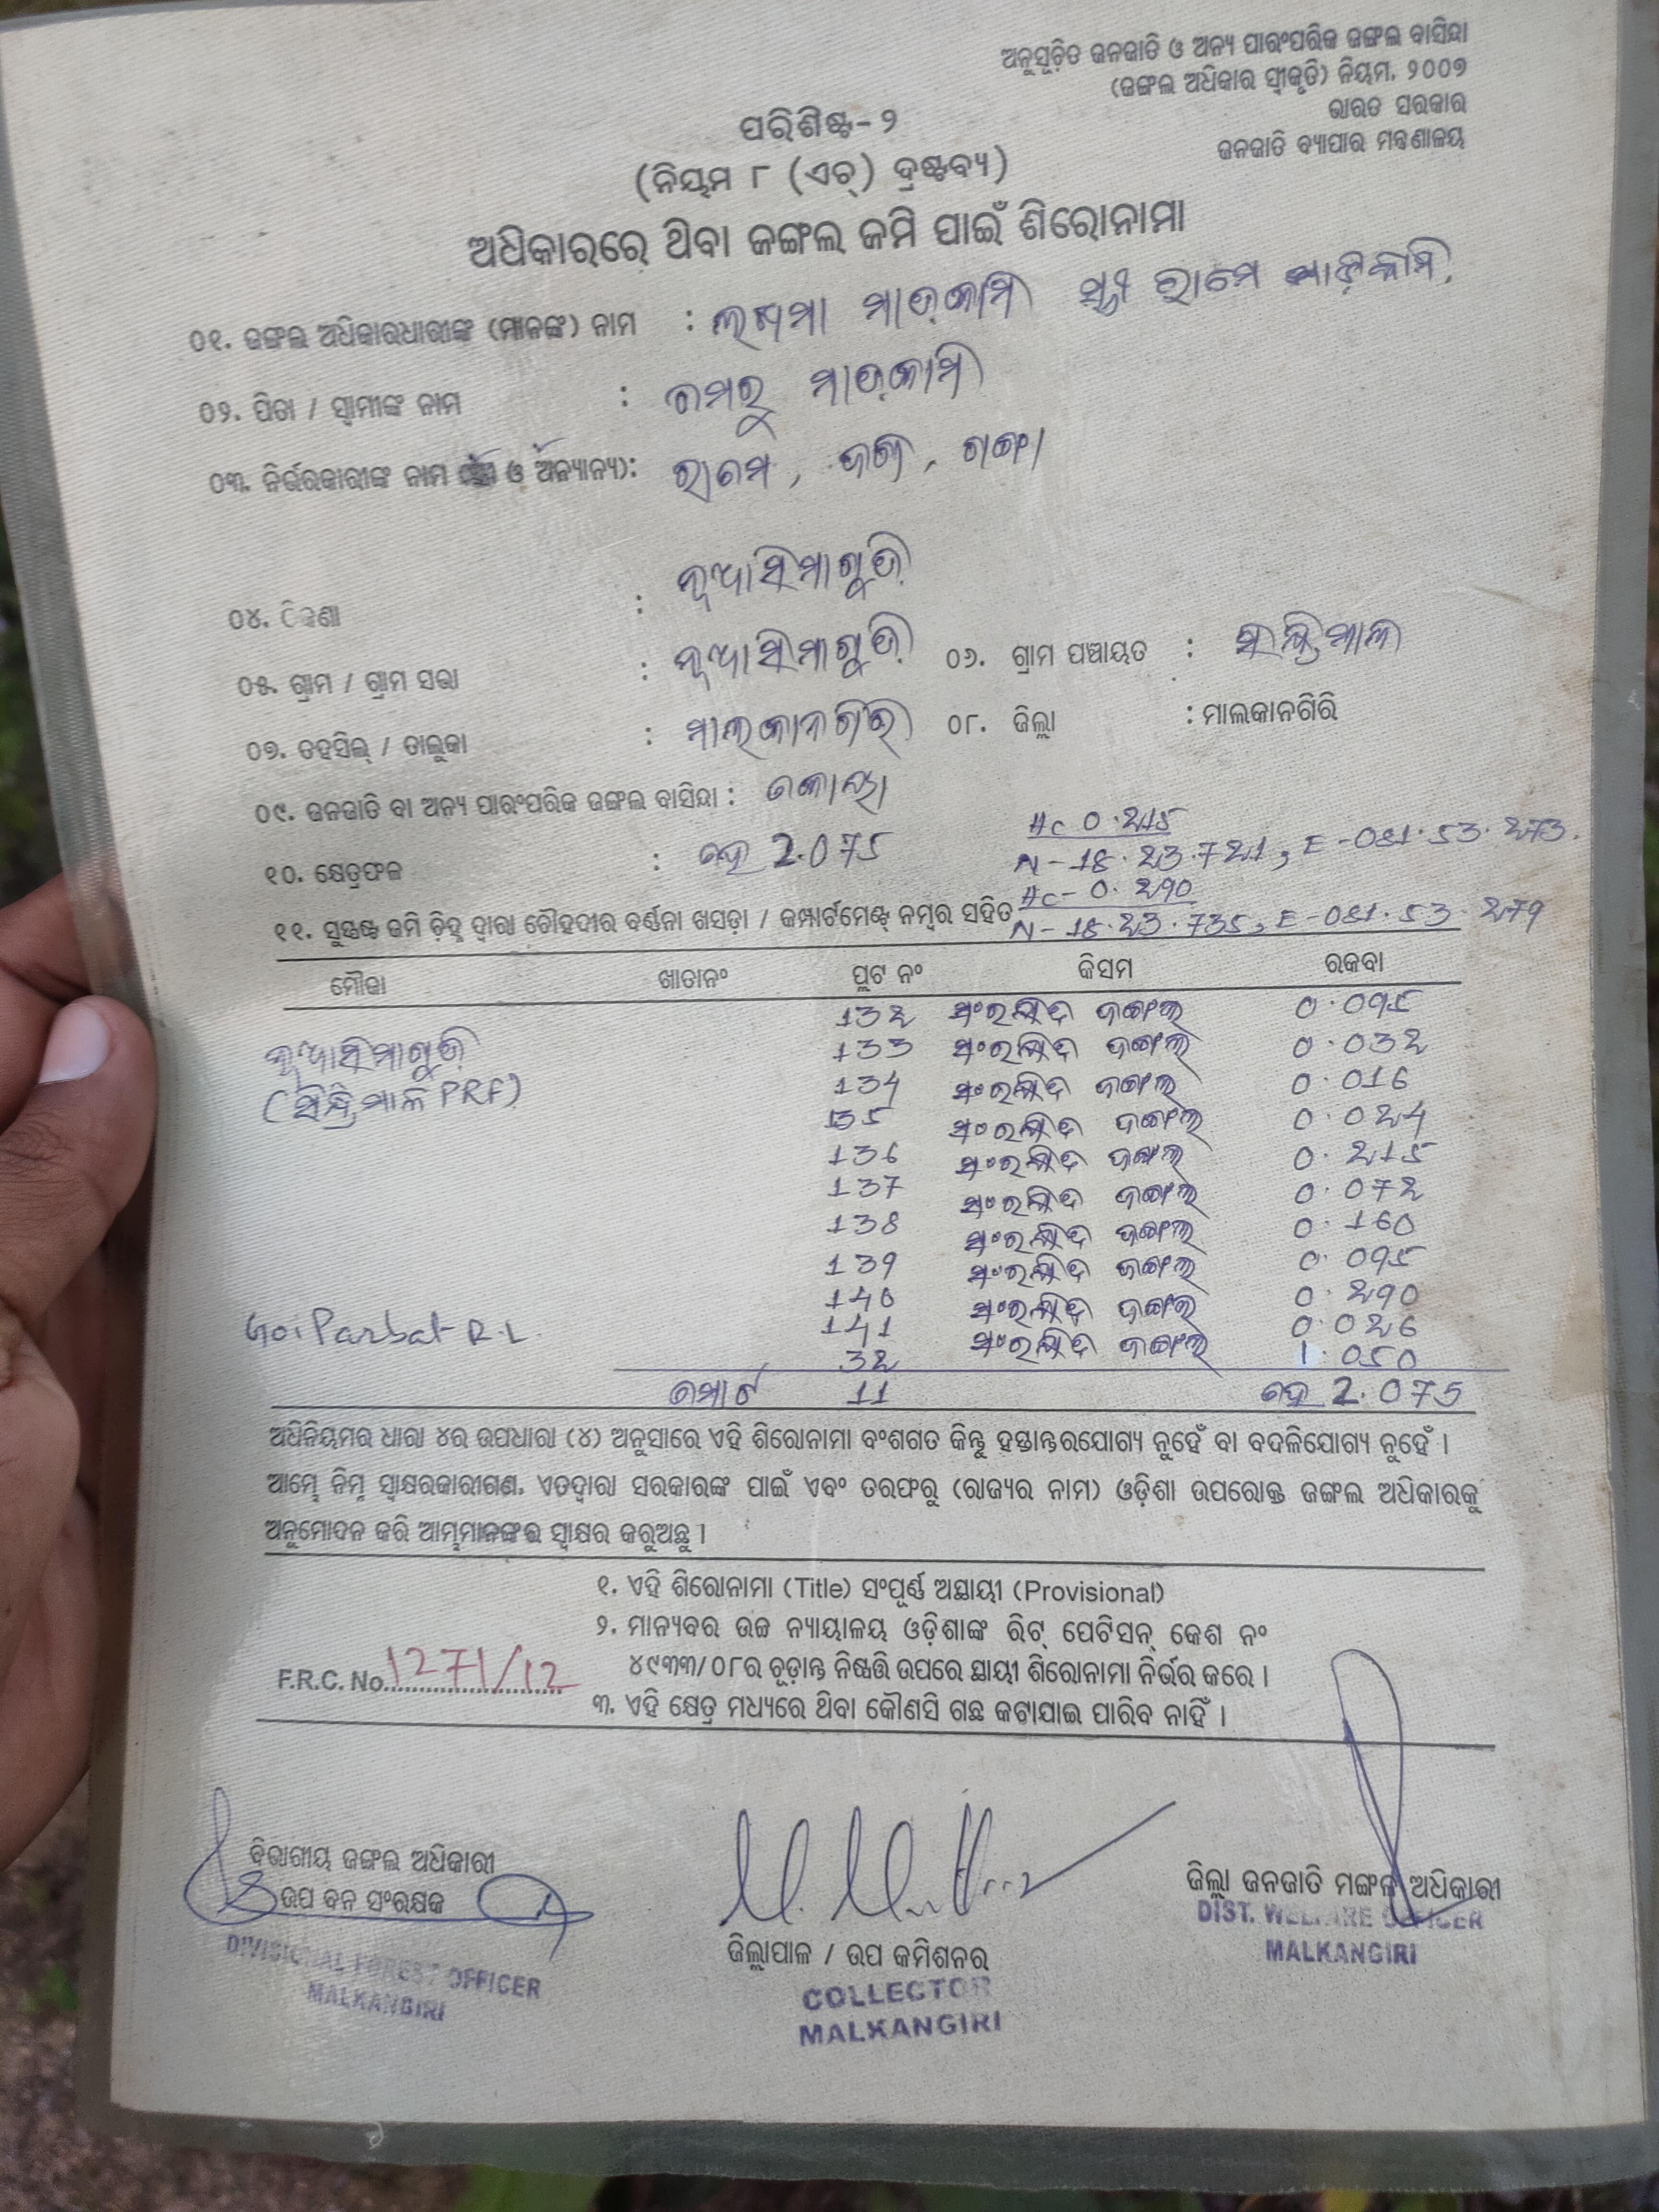 ଅନୁସୂଚିତ ଜନଜାତି ଓ ଅନ୍ୟ ପାରଂପରିକ ଜଙ୍ଗଲ ବାସିନ୍ଦା
(ଜଙ୍ଗଲ ଅଧିକାର ସ୍ୱୀକୃତି) ନିୟମ, ୨୦୦୭
ଭାରତ ସରକାର
ଜନଜାତି ବ୍ୟାପାର ମନ୍ତ୍ରଣାଳୟ
ପରିଶିଷ୍ଟ-୨
(ନିୟମ ୮ (ଏଚ୍) ଦ୍ରଷ୍ଟବ୍ୟ)
ଅଧିକାରରେ ଥିବା ଜଙ୍ଗଲ ଜମି ପାଇଁ ଶିରୋନାମା
୦୧. ଜଙ୍ଗଲ ଅଧିକାରଧାରୀଙ୍କ (ମାନଙ୍କ) ନାମ : ମାଡ଼କାମି ସ୍ତ୍ରୀ ରାମେ ମାଡ଼କାମି
୦୨. ପିତା / ସ୍ୱାମୀଙ୍କ ନାମ : ମାଡ଼କାମି
୦୩. ନିର୍ଭରକାରୀଙ୍କ ନାମ ଓ ଅନ୍ୟାନ୍ୟ): ରାମେ, ଗଙ୍ଗା
୦୪. ଠିକଣା : ନୂଆସିମାଗୁଡ଼ି
୦୫. ଗ୍ରାମ / ଗ୍ରାମ ସଭା : ନୂଆସିମାଗୁଡ଼ି ୦୬. ଗ୍ରାମ ପଞ୍ଚାୟତ : ସିନ୍ଦ୍ରିମାଳ
୦୭. ତହସିଲ୍ / ତାଲୁକା : ମାଲକାନଗିରି ୦୮. ଜିଲ୍ଲା : ମାଲକାନଗିରି
୦୯. ଜନଜାତି ବା ଅନ୍ୟ ପାରଂପରିକ ଜଙ୍ଗଲ ବାସିନ୍ଦା : କୋୟା
୧୦. କ୍ଷେତ୍ରଫଳ : ହେ 2.075
Hc 0.215
N-18.23.721, E-081.53.273.
Hc-0.290
୧୧. ସୁସ୍ପଷ୍ଟ ଜମି ଚିହ୍ନ ଦ୍ୱାରା ଚୌହଦୀର ବର୍ଣ୍ଣନା ଖସଡ଼ା / କମ୍ପାର୍ଟମେଣ୍ଟ୍ ନମ୍ବର ସହିତ N-18.23.735, E-081.53.279
ମୌଜା ଖାତାନଂ ପ୍ଲଟ ନଂ କିସମ ରକବା
132 ସଂରକ୍ଷିତ ଜଙ୍ଗଲ 0.095
ନୂଆସିମାଗୁଡ଼ି 133 ସଂରକ୍ଷିତ ଜଙ୍ଗଲ 0.032
(ସିନ୍ଦ୍ରିମାଳ PRF) 134 ସଂରକ୍ଷିତ ଜଙ୍ଗଲ 0.016
135 ସଂରକ୍ଷିତ ଜଙ୍ଗଲ 0.024
136 ସଂରକ୍ଷିତ ଜଙ୍ଗଲ 0.215
137 ସଂରକ୍ଷିତ ଜଙ୍ଗଲ 0.072
138 ସଂରକ୍ଷିତ ଜଙ୍ଗଲ 0.160
139 ସଂରକ୍ଷିତ ଜଙ୍ଗଲ 0.095
140 ସଂରକ୍ଷିତ ଜଙ୍ଗଲ 0.290
141 ସଂରକ୍ଷିତ ଜଙ୍ଗଲ 0.026
Goi Parbat R.L. 32 1.050
ମୋଟ 11 ହେ 2.075
ଅଧିନିୟମର ଧାରା ୪ର ଉପଧାରା (୪) ଅନୁସାରେ ଏହି ଶିରୋନାମା ବଂଶଗତ କିନ୍ତୁ ହସ୍ତାନ୍ତରଯୋଗ୍ୟ ନୁହେଁ ବା ବଦଳିଯୋଗ୍ୟ ନୁହେଁ ।
ଆମ୍ଭେ ନିମ୍ନ ସ୍ୱାକ୍ଷରକାରୀଗଣ, ଏତଦ୍ଦ୍ୱାରା ସରକାରଙ୍କ ପାଇଁ ଏବଂ ତରଫରୁ (ରାଜ୍ୟର ନାମ) ଓଡ଼ିଶା ଉପରୋକ୍ତ ଜଙ୍ଗଲ ଅଧିକାରକୁ
ଅନୁମୋଦନ କରି ଆମ୍ଭମାନଙ୍କର ସ୍ୱାକ୍ଷର କରୁଅଛୁ ।
୧. ଏହି ଶିରୋନାମା (Title) ସଂପୂର୍ଣ୍ଣ ଅସ୍ଥାୟୀ (Provisional)
୨. ମାନ୍ୟବର ଉଚ୍ଚ ନ୍ୟାୟାଳୟ ଓଡ଼ିଶାଙ୍କ ରିଟ୍ ପେଟିସନ୍ କେଶ ନଂ
୪୯୩୩/୦୮ର ଚୂଡ଼ାନ୍ତ ନିଷ୍ପତ୍ତି ଉପରେ ସ୍ଥାୟୀ ଶିରୋନାମା ନିର୍ଭର କରେ ।
F.R.C. No. 1271/12
୩. ଏହି କ୍ଷେତ୍ର ମଧ୍ୟରେ ଥିବା କୌଣସି ଗଛ କଟାଯାଇ ପାରିବ ନାହିଁ ।
ବିଭାଗୀୟ ଜଙ୍ଗଲ ଅଧିକାରୀ
ଉପ ବନ ସଂରକ୍ଷକ
DIVISIONAL FOREST OFFICER
MALKANGIRI
ଜିଲ୍ଲାପାଳ / ଉପ କମିଶନର
COLLECTOR
MALKANGIRI
ଜିଲ୍ଲା ଜନଜାତି ମଙ୍ଗଳ ଅଧିକାରୀ
DIST. WELFARE OFFICER
MALKANGIRI